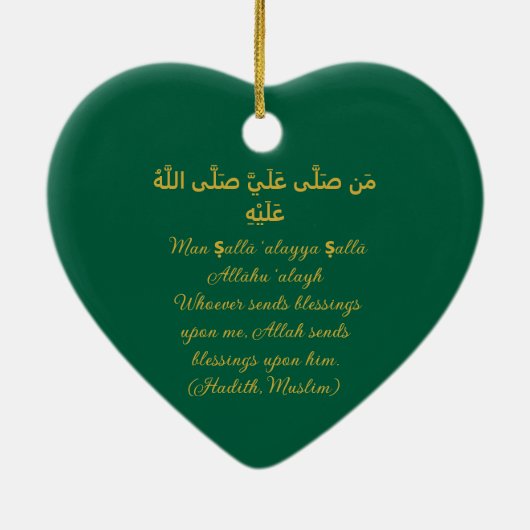 مَن صَلَّى عَلَيَّ صَلَّى اللَّهُ
عَلَيْهِ
Man Ṣallā ‘alayya Ṣallā
Allāhu ‘alayh
Whoever sends blessings
upon me, Allah sends
blessings upon him.
(Hadith, Muslim)